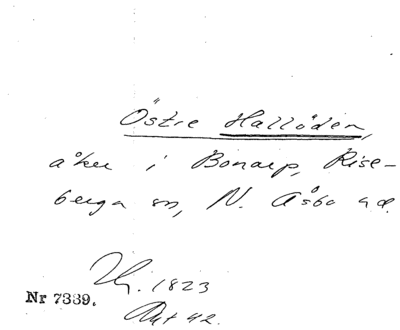 Östre Hallöden,
åker i Bonarp, Rise-
berga sn, N. Åsbo hd.
1823
Nr 7339.
Akt 42.